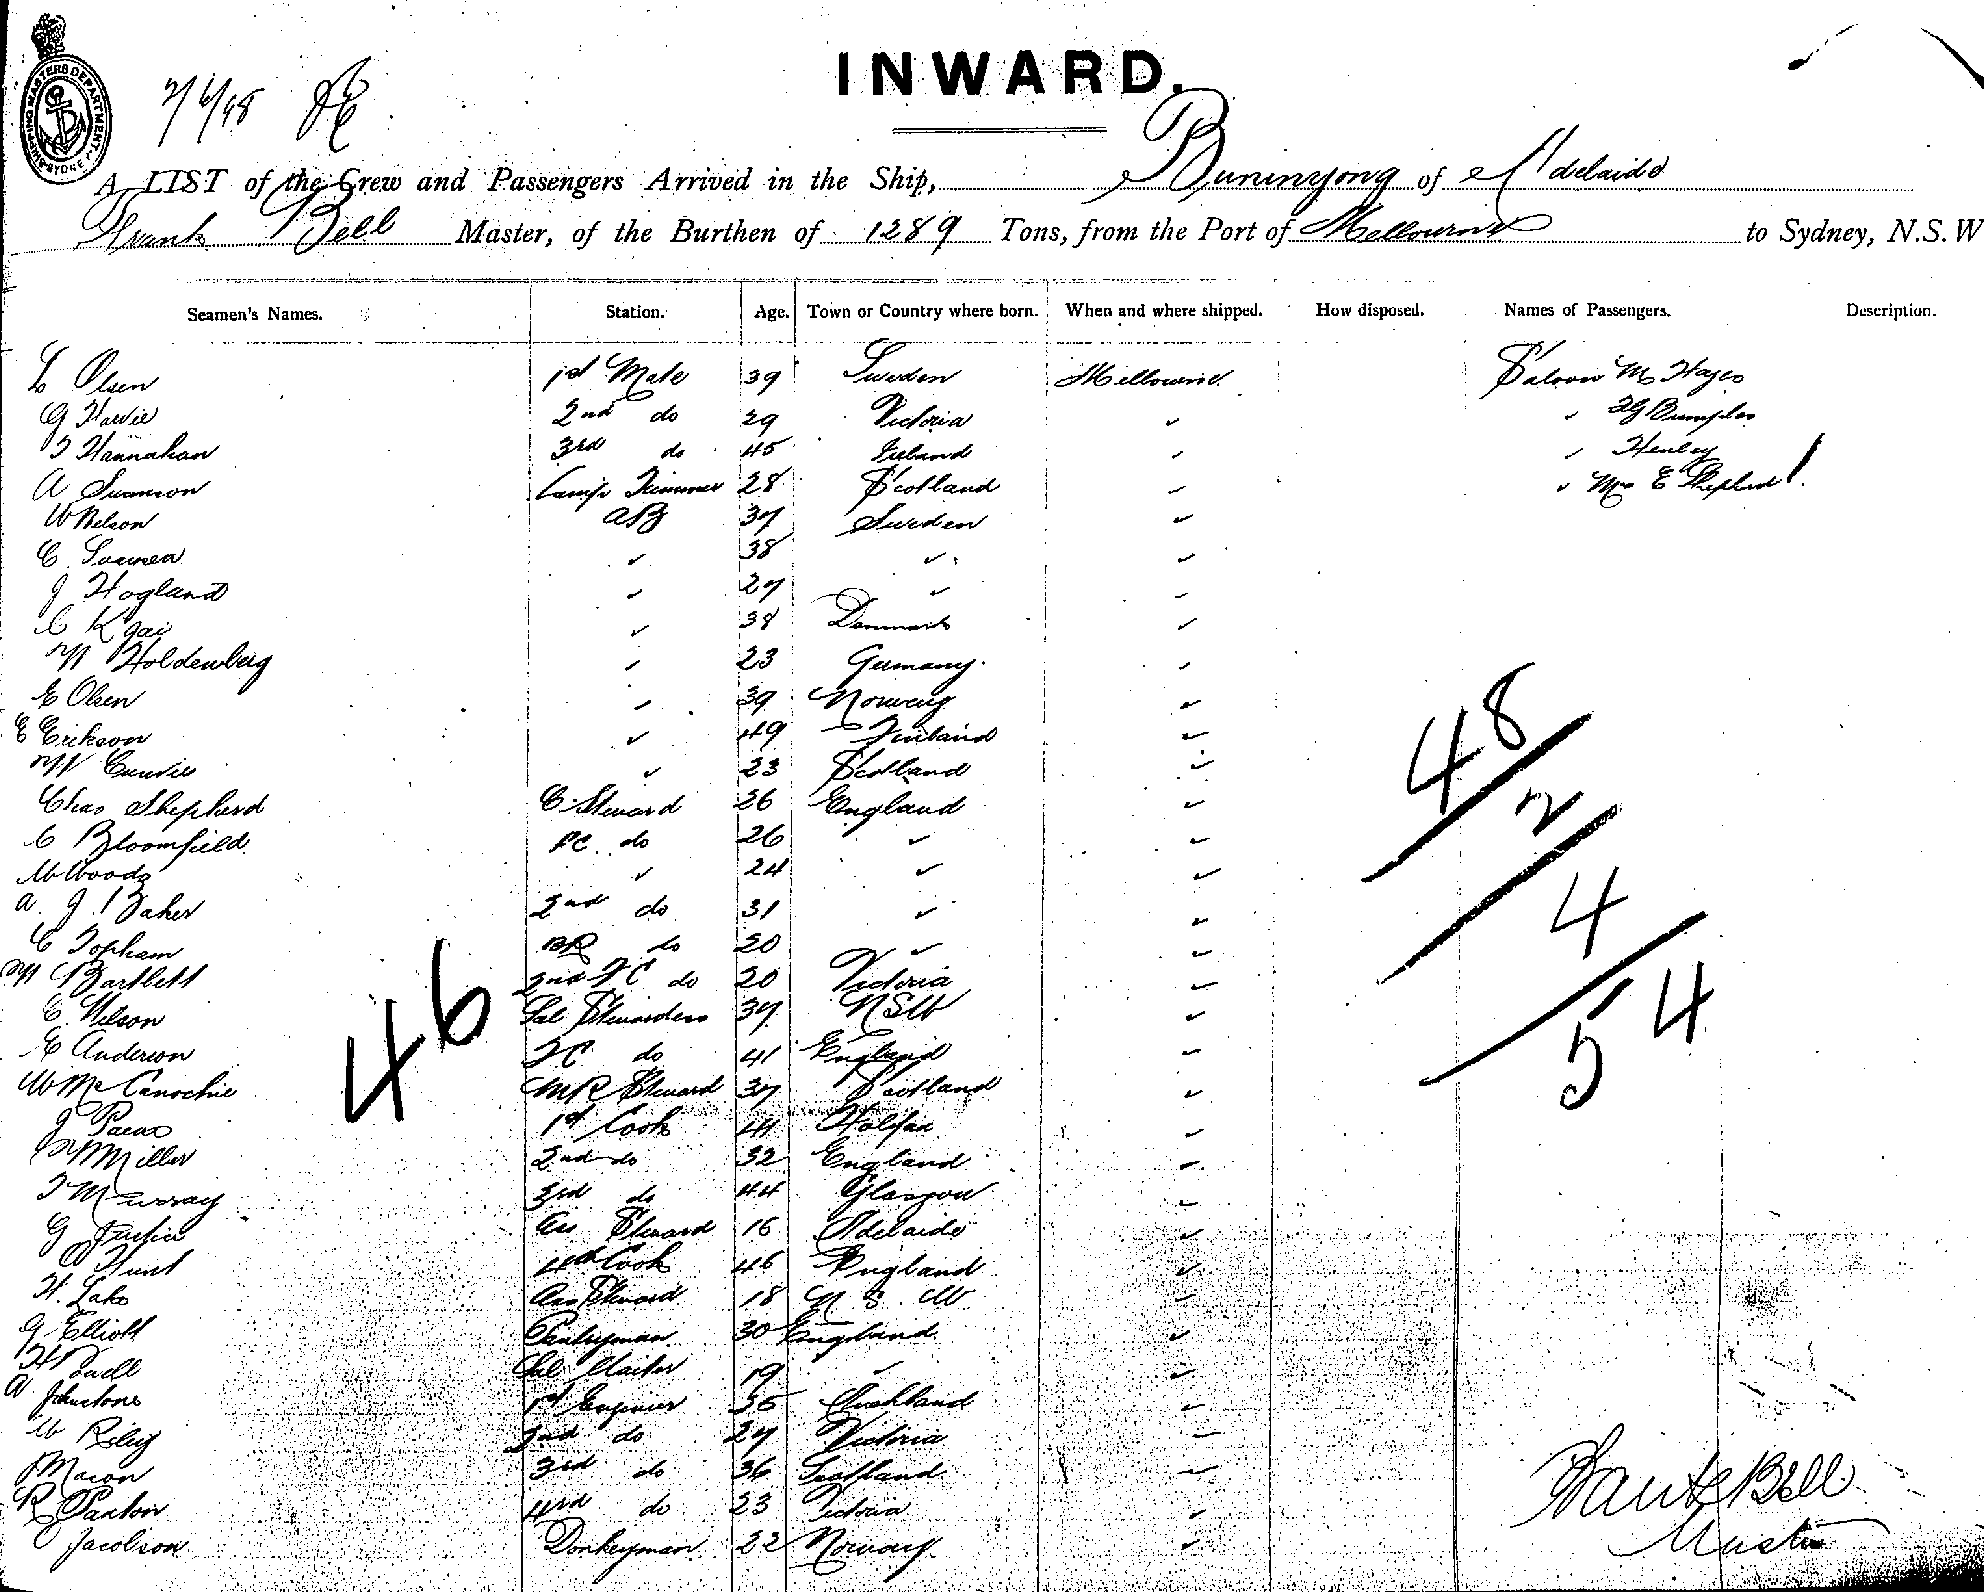 SHIPPING MASTERS DEPARTMENT SYDNEY
INWARD.
A LIST of the Crew and Passengers Arrived in the Ship, Buninyong of Adelaide
Frank Bell Master, of the Burthen of 1289 Tons, from the Port of Melbourne to Sydney, N.S.W
Seamen's Names. Station. Age. Town or Country where born. When and where shipped. How disposed. Names of Passengers. Description.
L Olsen 1st Mate 39 Sweden Melbourne Saloon Mr Hayes
G Harvie 2nd do 29 Victoria
T Hannahan 3rd do 45 Ireland Henley
A Swanson Lamp Trimmer 28 Scotland Mrs E Shepherd
W Nelson AB 37 Sweden
C 38
J Hogland 27
C 38 Denmark
W Holdenberg 23 Germany
E Olsen 39 Norway
E Erikson 49 Finland
W 23 Scotland
Chas Shepherd C Steward 26 England
C Bloomfield FC do 26
W Woods 24
A. J. Baker 2nd do 31
C Topham BR do 20
W Bartlett 2nd FC do 20 Victoria
C. Wilson Sal Stewardess 37 NSW
E Anderson FC do 41 England
W Mc Canochie MR Steward 37 Scotland
J 1st Cook 44
W Miller 2nd do 32 England
T Murray 3rd do 44 Glasgow
G Ass Steward 16 Adelaide
Hunt 4th Cook 46 England
H. Lake Ass Steward 18 N S W
G Elliott Pantryman 30 England
H Sal Waiter 19
A Johnstone 1st Engineer
W Riley 2nd do 27 Victoria
Mason 3rd do 36 Scotland
R Paxton 4rd do 23 Victoria
Jacobson Donkeyman 22 Norway
46
48
2
4
54
Frank Bell
Master